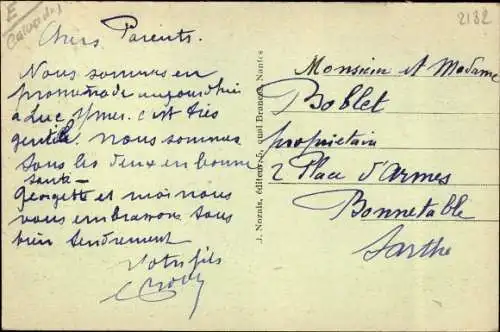 E
Calvados
2132
Chers Parents.
Nous sommes en
promenade aujourd'hui
a Luc s/mer. c'est très
gentil. nous sommes
tous les deux en bonne
santé
Georgette et moi nous
vous embrassons tous
bien tendrement
Votre fils
J. Nozais, éditeur, 5, quai Brancas, Nantes
Monsieur et Madame
Boblet
propriétaire
2 Place d'Armes
Bonnetable
Sarthe